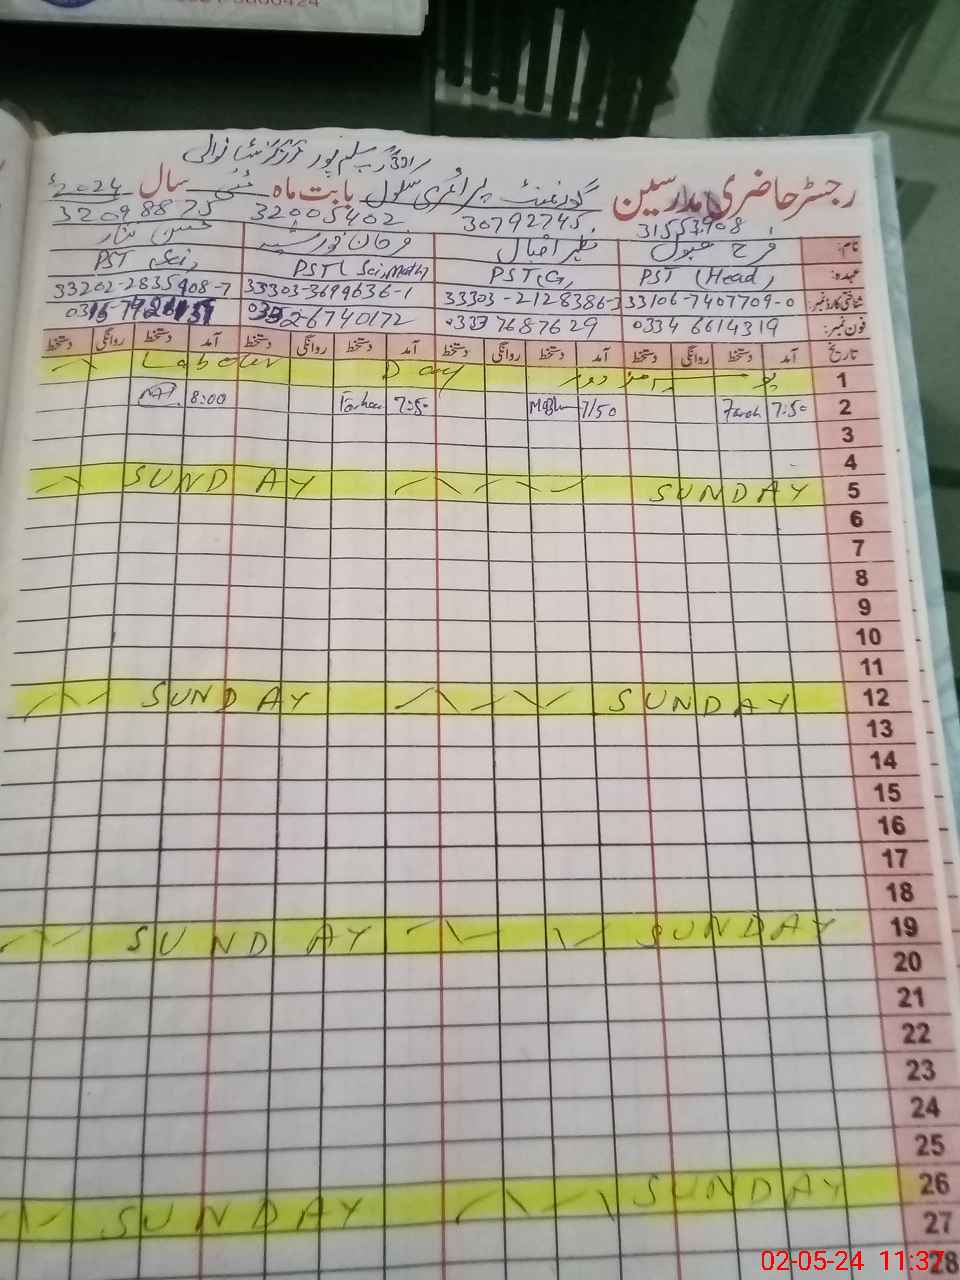 گورنمنٹ پرائمری سکول
رجسٹر حاضری مدرسین بابت ماہ مئی سال 2024ء
31553908 30792745 32005402 32098873
نام: فرح اقبال
عہدہ: PST (Head) PST (G) PST (Sci, Math) PST Sci
شناختی کارڈ نمبر: 33106-7407709-0 33303-2128386- 33303-3699636-1 33202-2835908-7
فون نمبر: 0334 6614319 0333 7687629 0332 6740172
تاریخ آمد دستخط روانگی دستخط آمد دستخط روانگی دستخط آمد دستخط روانگی دستخط آمد دستخط روانگی دستخط
1 Day Labour
2 7:50 Farah 7/50 7:50 Farhan 8:00
3
4
5 SUNDAY SUNDAY
6
7
8
9
10
11
12 SUNDAY SUNDAY
13
14
15
16
17
18
19 SUNDAY SUNDAY
20
21
22
23
24
25
26 SUNDAY SUNDAY
27
28
02-05-24 11:37